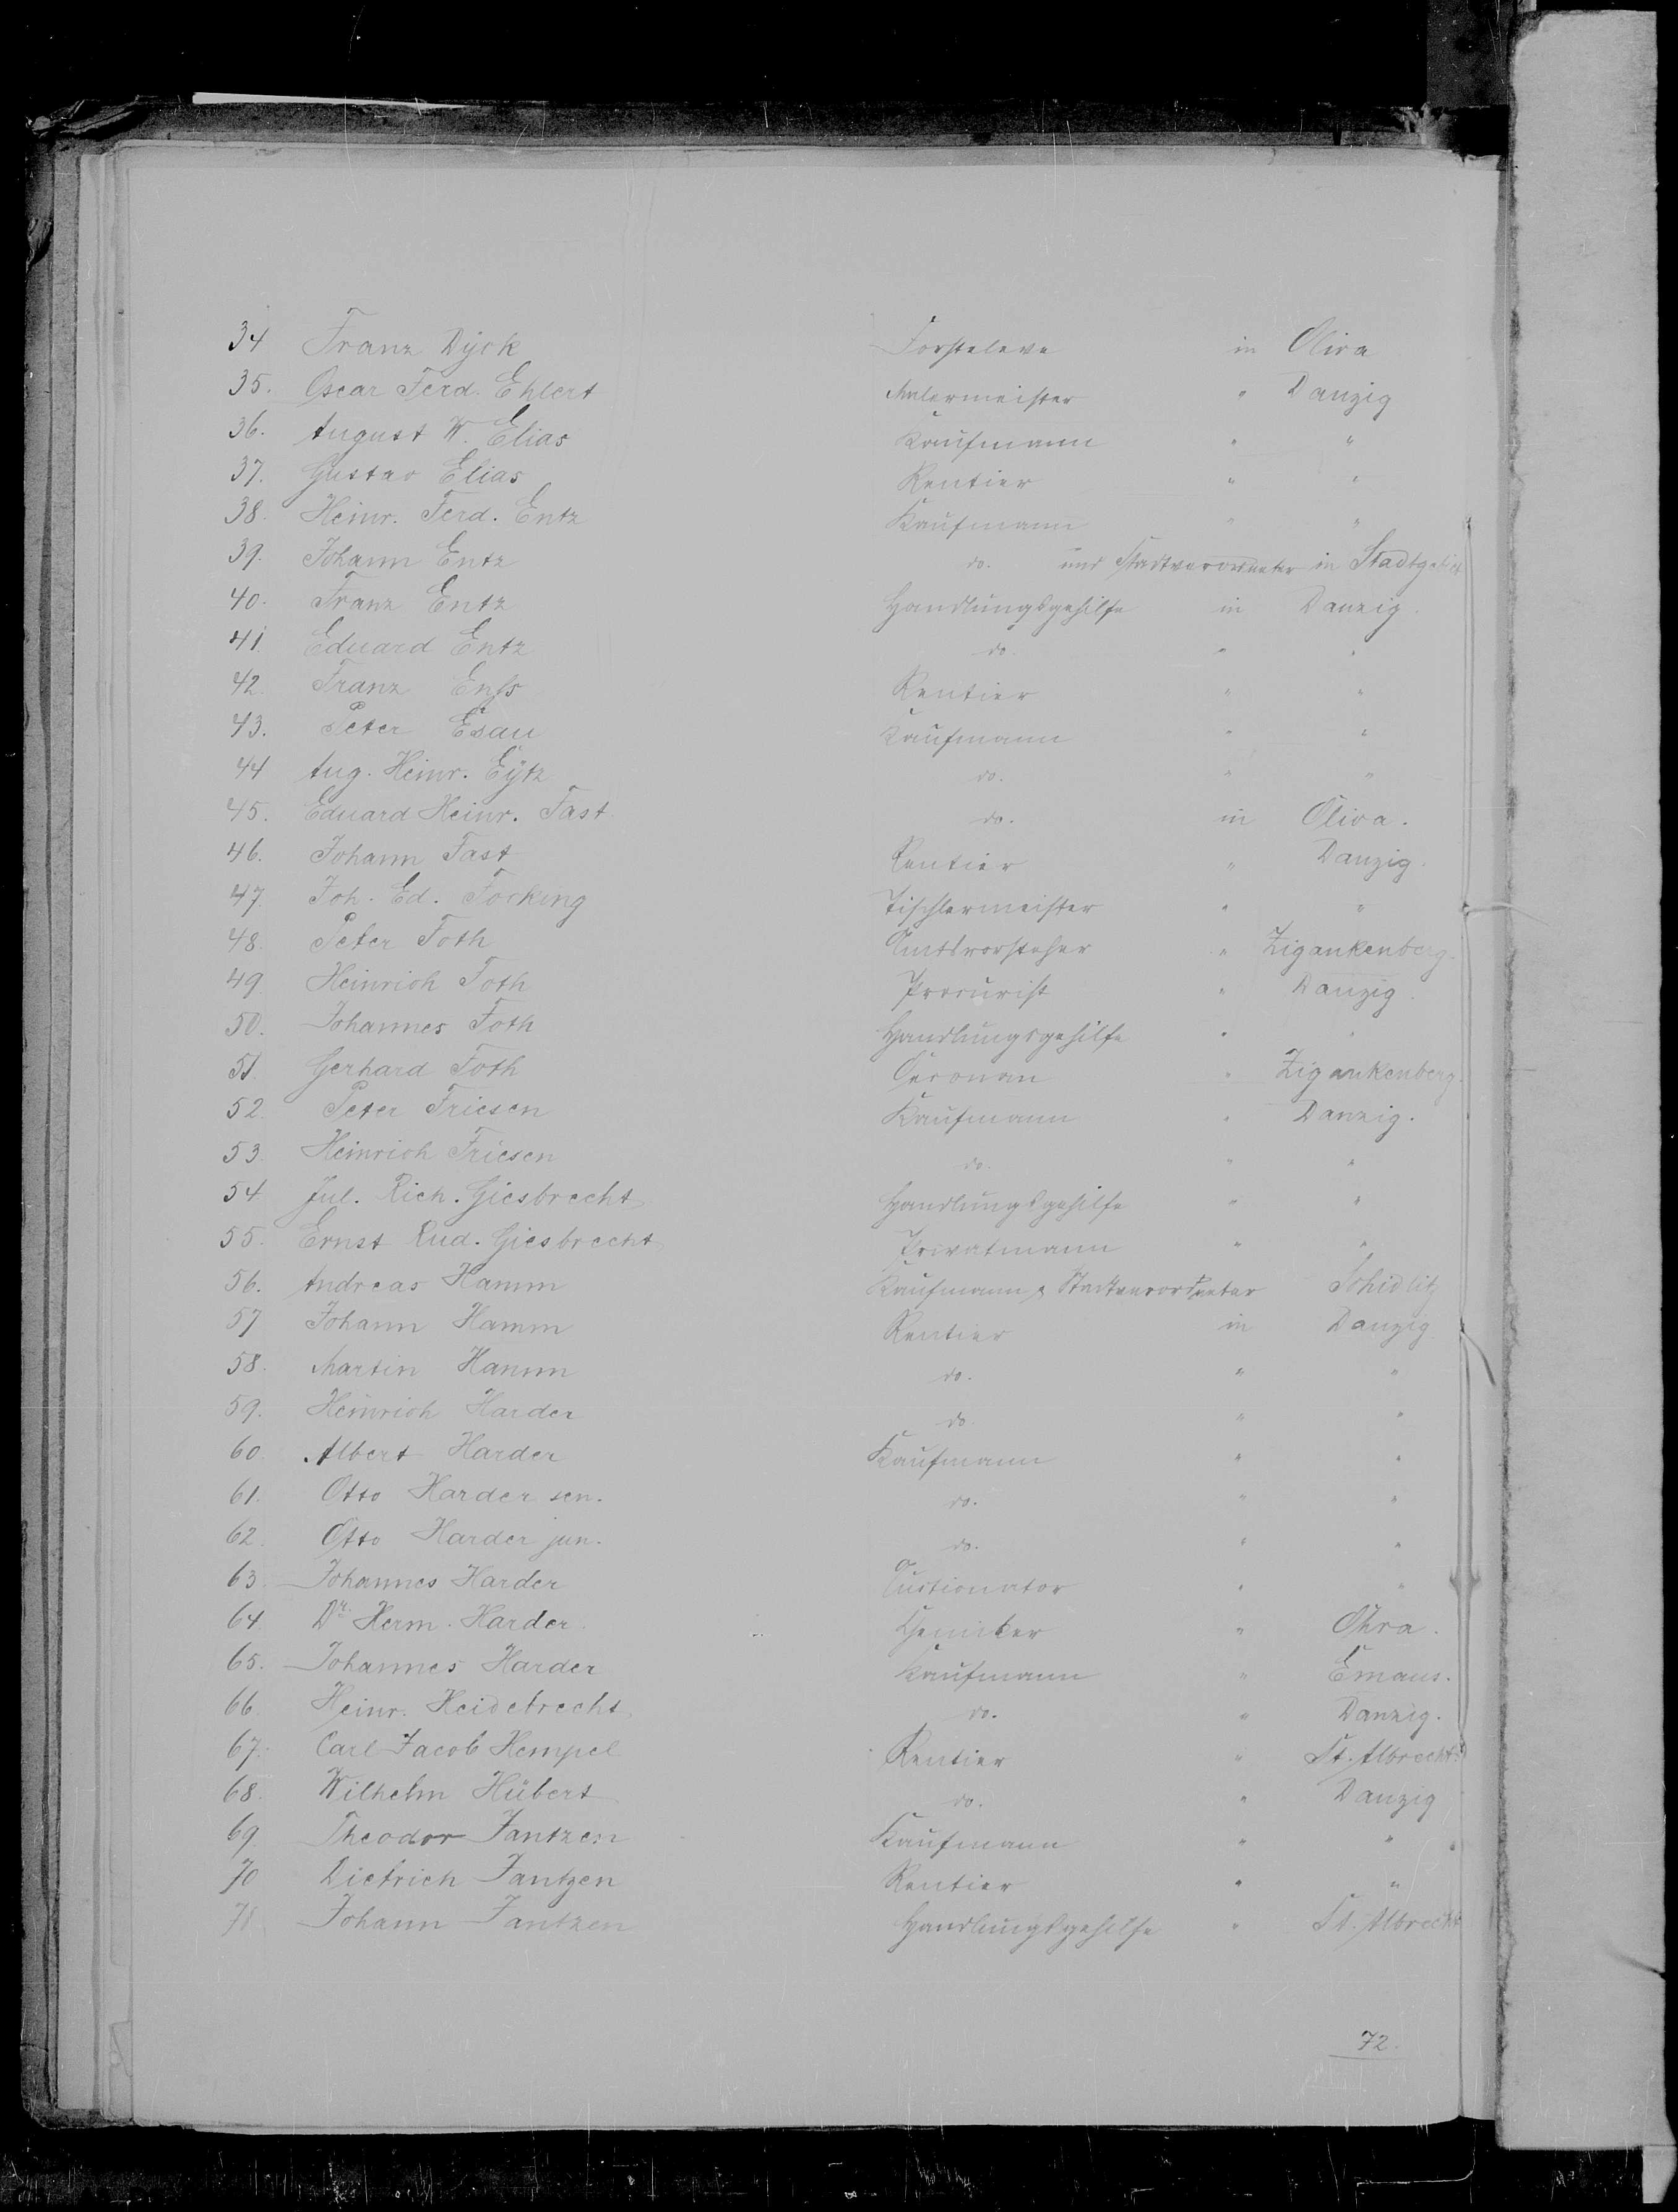 34 Franz Dyck Forsteleve in Oliva
35. Oscar Ferd. Ehlert Malermeister " Danzig
36. August W. Elias Kaufmann " "
37. Gustav Elias Rentier " "
38. Heinr. Ferd. Entz Kaufmann " "
39. Johann Entz do. und Stadtverordneter in Stadtgebiet
40. Franz Entz Handlungsgehilfe in Danzig.
41. Eduard Entz do. " "
42. Franz Enss Rentier " "
43. Peter Esau Kaufmann " "
44 Aug. Heinr. Eÿtz do. " "
45. Eduard Heinr. Fast do. in Oliva.
46. Johann Fast Rentier " Danzig.
47. Joh. Ed. Focking Tischlermeister " "
48. Peter Foth Amtsvorsteher " Zigankenberg.
49. Heinrich Foth Procurist " Danzig.
50. Johannes Foth Handlungsgehilfe " "
51. Gerhard Foth Oeconom " Zigankenberg.
52. Peter Friesen Kaufmann " Danzig.
53. Heinrich Friesen do. " "
54 Jul. Rich. Giesbrecht Handlungsgehilfe " "
55. Ernst Rud. Giesbrecht Privatmann " "
56. Andreas Hamm Kaufmann & Stadtverordneter Schidlitz
57 Johann Hamm Rentier in Danzig
58. Martin Hamm do. " "
59. Heinrich Harder do " "
60. Albert Harder Kaufmann " "
61. Otto Harder sen. do. " "
62. Otto Harder jun. do. " "
63. Johannes Harder Auctionator " "
64. Dr. Herm. Harder Chemiker " Ohra.
65. Johannes Harder Kaufmann " Emaus.
66. Heinr. Heidebrecht do. " Danzig.
67. Carl Jacob Hempel Rentier " St. Albrecht
68. Wilhelm Hübert do. " Danzig
69. Theodor Jantzen Kaufmann " "
70 Dietrich Jantzen Rentier " "
71. Johann Jantzen Handlungsgehilfe " St. Albrecht
72.